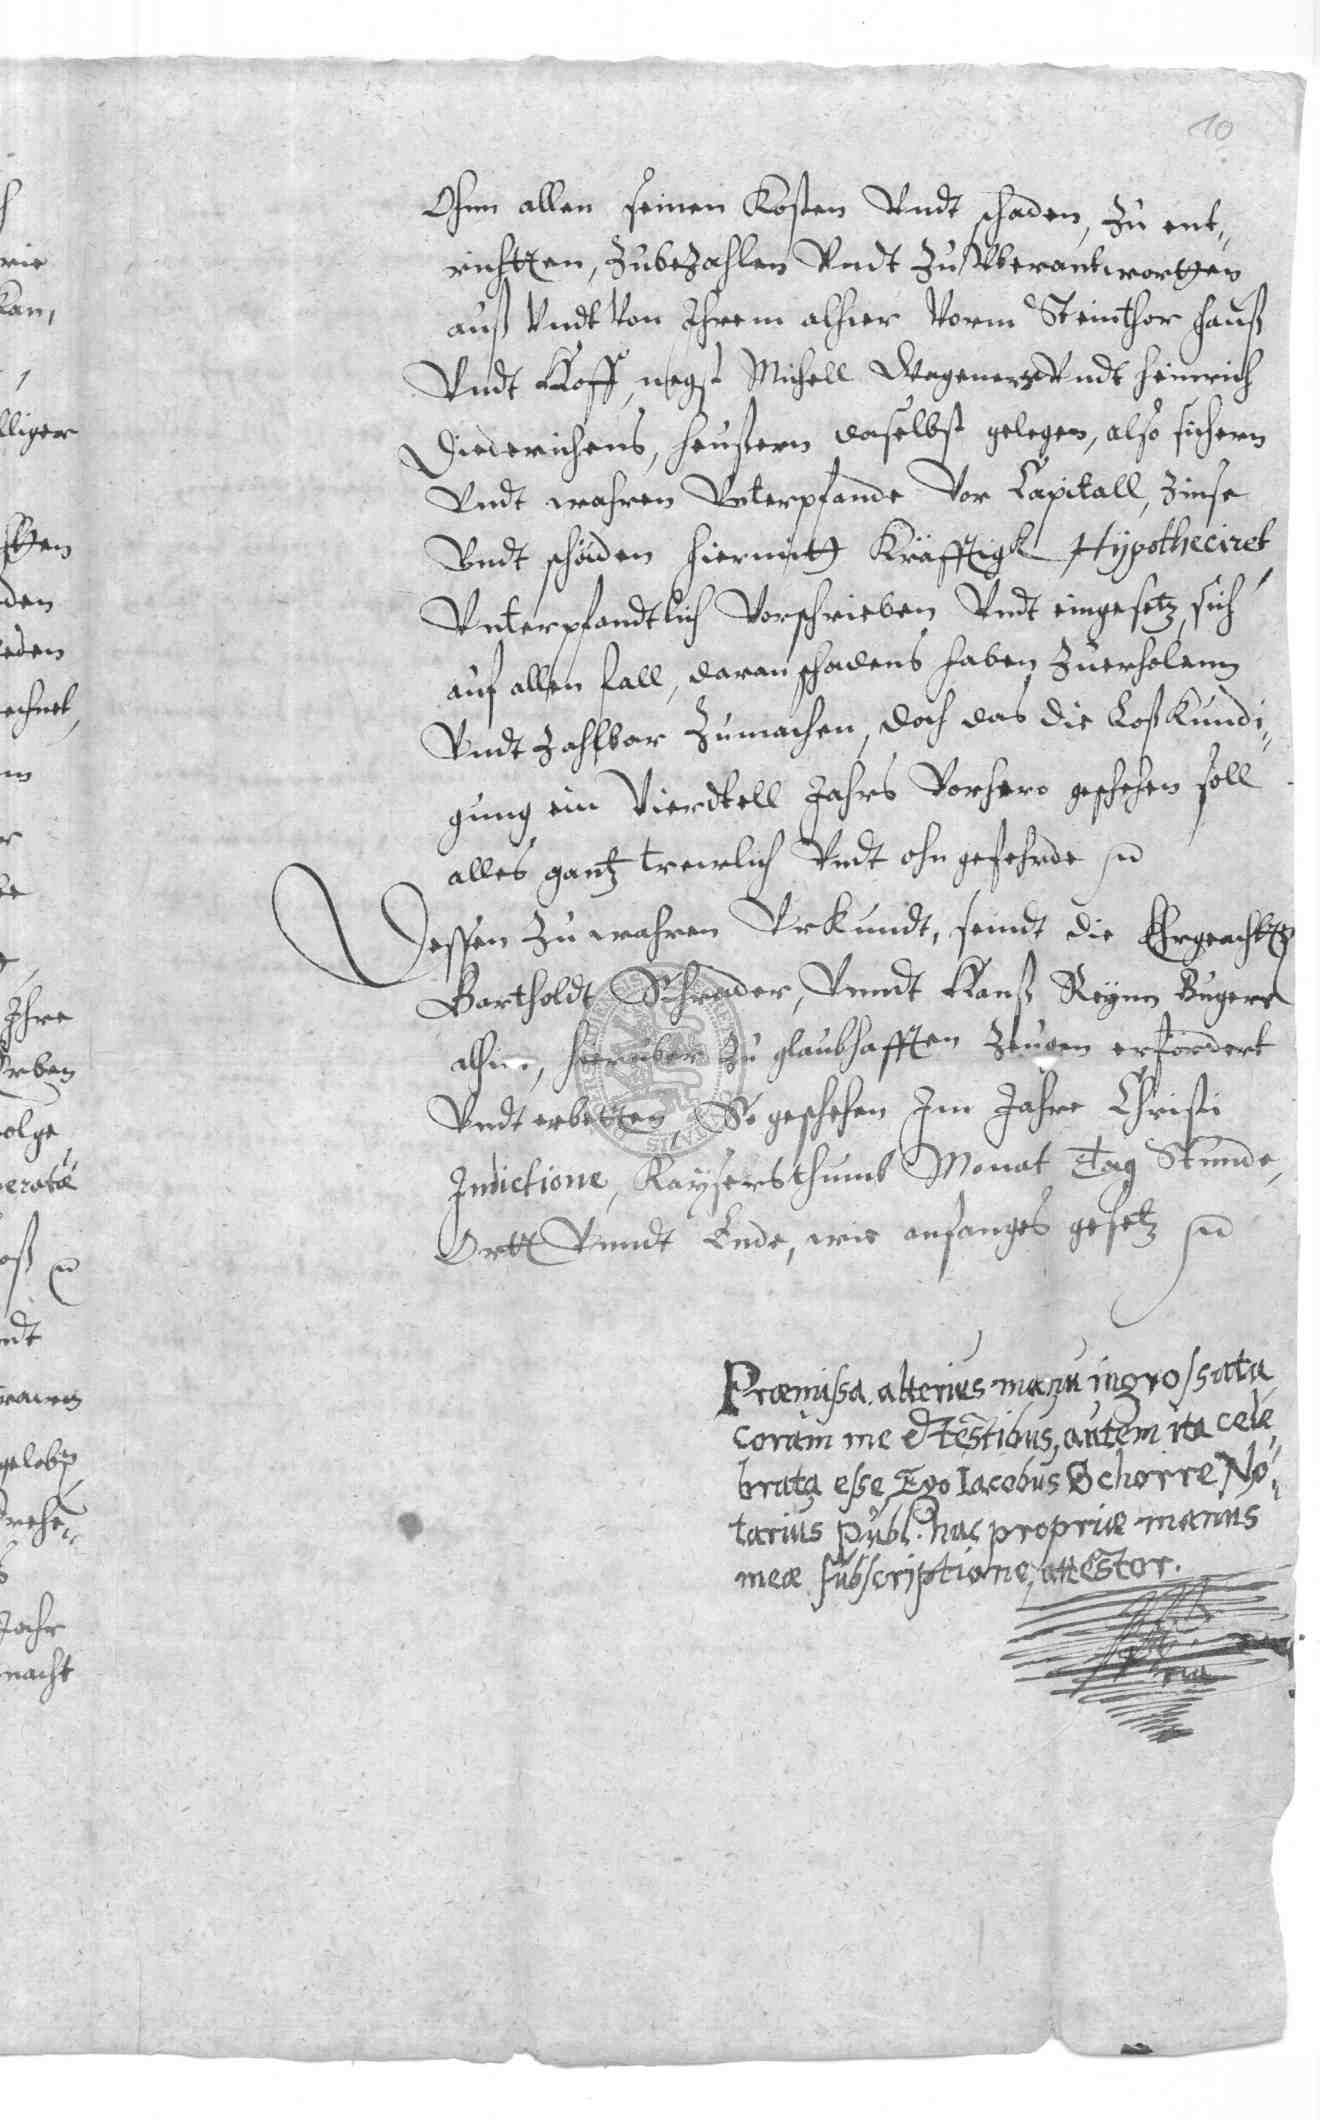 10
Ohnn allen seinen Kosten Vndt schaden, Zu ent„
richtten, Zubezahlen Vndt Zu Vberantwortten
auß Vndt Von Ihrem alhier Vorm Steinthor hauß
Vndt Hoff, negst Michell Wageners Vndt Heinrich
Diederichens, heußern daselbst gelegen, also sichern
Vndt wahren Vnterpfande Vor Capitall, Zinse
Vndt schäden hiermitt Kräfftigk Hypotheciret
Vnterpfandtlich Vorschrieben Vndt eingesetz, sich
auf allen fall, daran schadens haben Zuerholenn
Vndt Zahlbar Zumachen, doch das die Loßkundi„
gung ein Vierdtell Jahrs Vorhero geschehen soll
alles gantz trewlich Vndt ohn gefehrde
Dessen Zu wahren Vrkundt, seindt die Ehrgeachtte
Bartholdt Schrader, Vnndt Hanß Reymn Burger
alhie, hieruber Zu glaubhafften Zeugen erfordert
Vndt erbetten, So geschehen Im Jahre Christi
Indictione, Kaysersthumb Monat Tag Stunde,
Ortt Vnndt Ende, wie anfanges gesetz
Præmissa alterius manu ingrossata
coram me et testibus, autem ita cele„
brata esse Ego Iacobus Schorre No„
tarius Publ. hac propriæ manus
meæ subscriptione attestor.